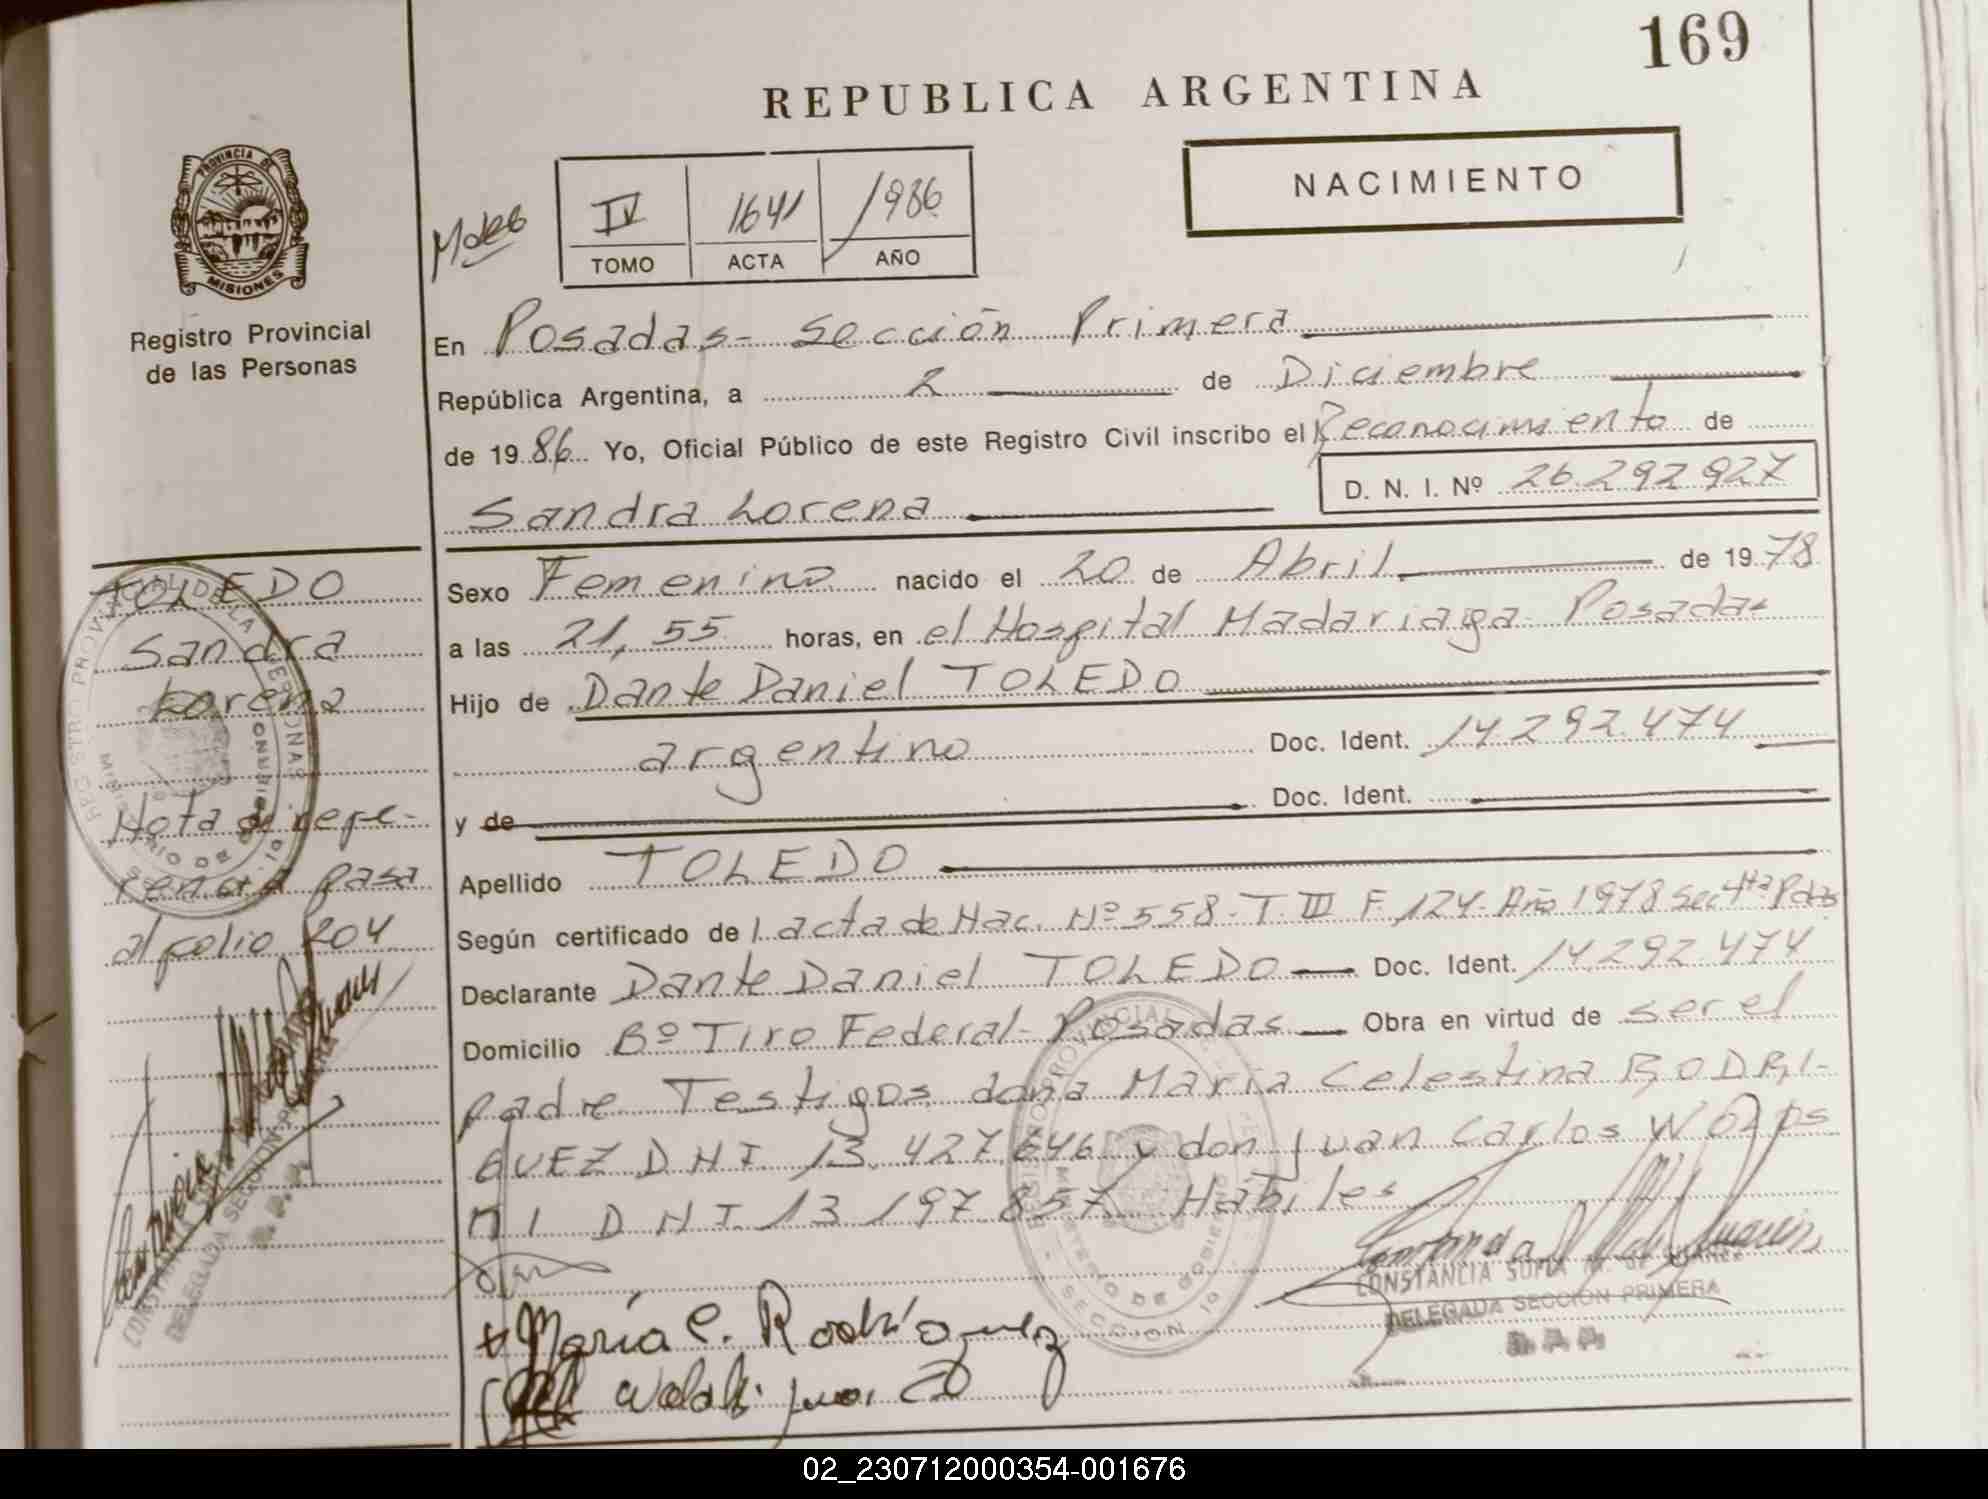 169
REPUBLICA ARGENTINA
NACIMIENTO
IV 1641 1986
TOMO ACTA AÑO
PROVINCIA DE
MISIONES
Registro Provincial
de las Personas
En Posadas - Sección Primera
República Argentina, a 2 de Diciembre
de 1986 Yo, Oficial Público de este Registro Civil inscribo el Reconocimiento de
Sandra Lorena D. N. I. Nº 26.292.927
Sexo Femenino nacido el 20 de Abril de 1978
a las 21,55 horas, en el Hospital Madariaga - Posadas
Hijo de Dante Daniel TOLEDO
argentino Doc. Ident. 14.292.474
y de Doc. Ident.
Apellido TOLEDO
Según certificado de acta de Nac. Nº 558 - T III F. 124 - Año 1978 Sec 4ta Pdas
Declarante Dante Daniel TOLEDO Doc. Ident. 14.292.474
Domicilio Bº Tiro Federal - Posadas Obra en virtud de ser el
padre Testigos doña María Celestina RODRI-
GUEZ DNI 13.427.646 y don Juan Carlos
DNI 13 197 857 Habiles
María C. Rodríguez
CONSTANCIA SOFIA M. DE SUAREZ
DELEGADA SECCION PRIMERA
TOLEDO
Sandra
Lorena
Nota de refe-
rencia pasa
al folio 204
DELEGADA SECCION PRIMERA
02_230712000354-001676